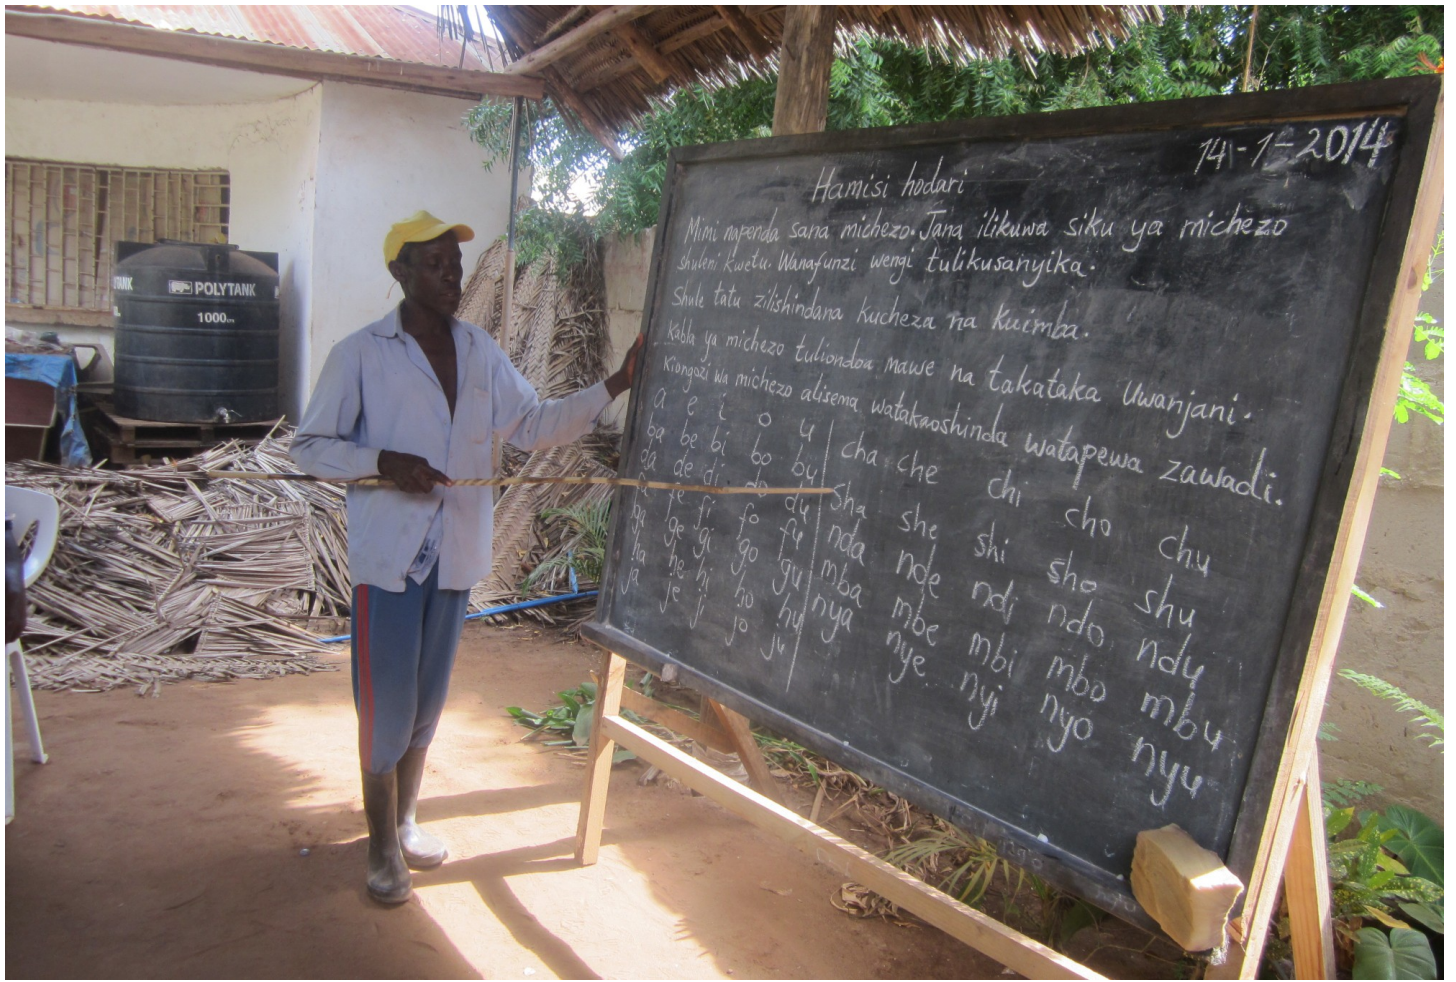 14-1-2014
Hamisi hodari
Mimi napenda sana michezo. Jana ilikuwa siku ya michezo
shuleni kwetu. Wanafunzi wengi tulikusanyika.
Shule tatu zilishindana kucheza na kuimba.
Kabla ya michezo tuliondoa mawe na takataka uwanjani.
Kiongozi wa michezo alisema watakaoshinda watapewa zawadi.
a e i o u
ba be bi bo bu
da de di do du
fa fe fi fo fu
ga ge gi go gu
ha he hi ho hu
ja je ji jo ju
cha che chi cho chu
sha she shi sho shu
nda nde ndi ndo ndu
mba mbe mbi mbo mbu
nya nye nyi nyo nyu
POLYTANK
1000